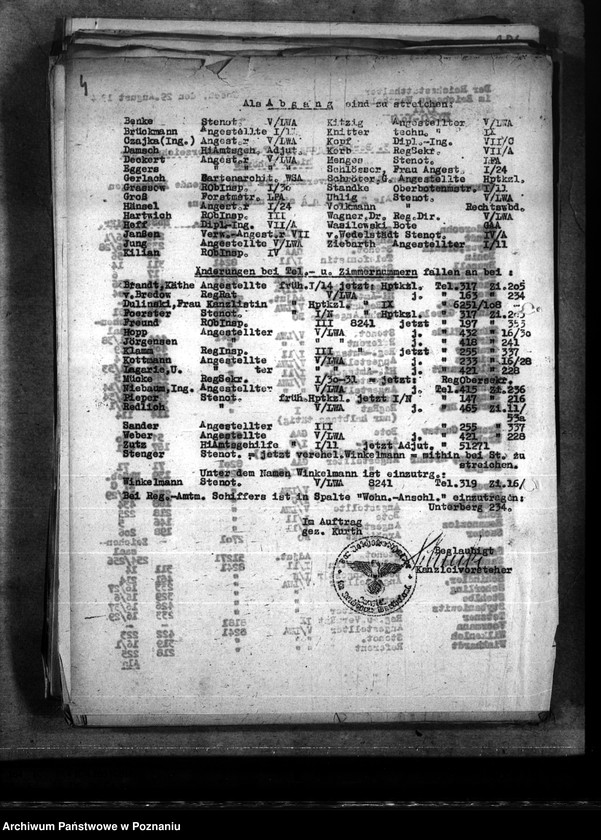 4
Als Abgang sind zu streichen:
Benke Stenot. V/LWA Kitzig Angestellter V/LWA
Brückmann Angestellte I/17 Knitter techn. " IX
Czajka(Ing.) Angest.r V/LWA Kopf Dipl.-Ing. VII/C
Damsch HiAmtsgeh. Adjut. Korb RegSekr. VII/A
Deckert Angest.r V/LWA Menges Stenot. LPA
Eggers " " " Schlösser, Frau Angest. I/24
Gerlach Gartenarchit. WSA Schröter,G. Angestellte Hptkzl.
Grassow RobInsp. I/30 Standke Oberbotenmstr. I/11
Groß Forstmstr. LPA Uhlig Stenot. V/LWA
Hänsel Angest.r I/24 Volkmann " Rechtsabd.
Hartwich RobInsp. III Wagner,Dr. Reg.Dir. V/LWA
Heff Dipl-Ing. VII/A Wasilowski Bote GAA
Janßen Verw.-Angest.r VII v.Wedelstädt Stenot. IV/A
Jung Angestellte V/LWA Ziebarth Angestellter I/11
Kilian RobInsp. IV
Änderungen bei Tel.- u. Zimmernummern fallen an bei :
Brandt,Käthe Angestellte früh.I/14 jetzt: Hptkzl. Tel.317 Zi.205
v.Bredow RegRat V/LWA j. " 163 " 234
Dulinski,Frau Kanzlistin Hptkzl. " IX " 6251/108 -
Foerster Stenot. " I/N " Hptkzl. " 317 Zi.205
Freund RobInsp. III 8241 jetzt " 197 " 353
Hopp Angestellter V/LWA j. " 432 " 16/30
Jörgensen " " " j. " 418 " 241
Klamm RegInsp. III " jetzt " 255 " 337
Kottmann Angestellte V/LWA j. " 233 " 16/28
Lagarie,U. " ter " j. " 421 " 228
Mücke RegSekr. I/30-31 = jetzt: RegObersekr.
Niebaum,Ing. Angestellter V/LWA j. Tel.415 Zi.236
Pieper Stenot. früh.Hptkzl. jetzt I/N " 147 " 216
Redlich " V/LWA j. " 465 Zi.11/
53a
Sander Angestellter III " 255 " 337
Weber Angestellte V/LWA j. " 421 " 228
Zutz HiAmtsgehilfe I/11 jetzt Adjut. " 51271
Stenger Stenot. - jetzt verehel.Winkelmann = mithin bei St. zu
streichen.
Unter dem Namen Winkelmann ist einzutrg.:
Winkelmann Stenot. V/LWA 8241 Tel.319 Zi.16/
Bei Reg.-Amtm. Schiffers ist in Spalte "Wohn.-Anschl." einzutragen:
Unterberg 234.
Im Auftrag
gez. Kurth
Beglaubigt
Kanzleivorsteher
Archiwum Państwowe w Poznaniu